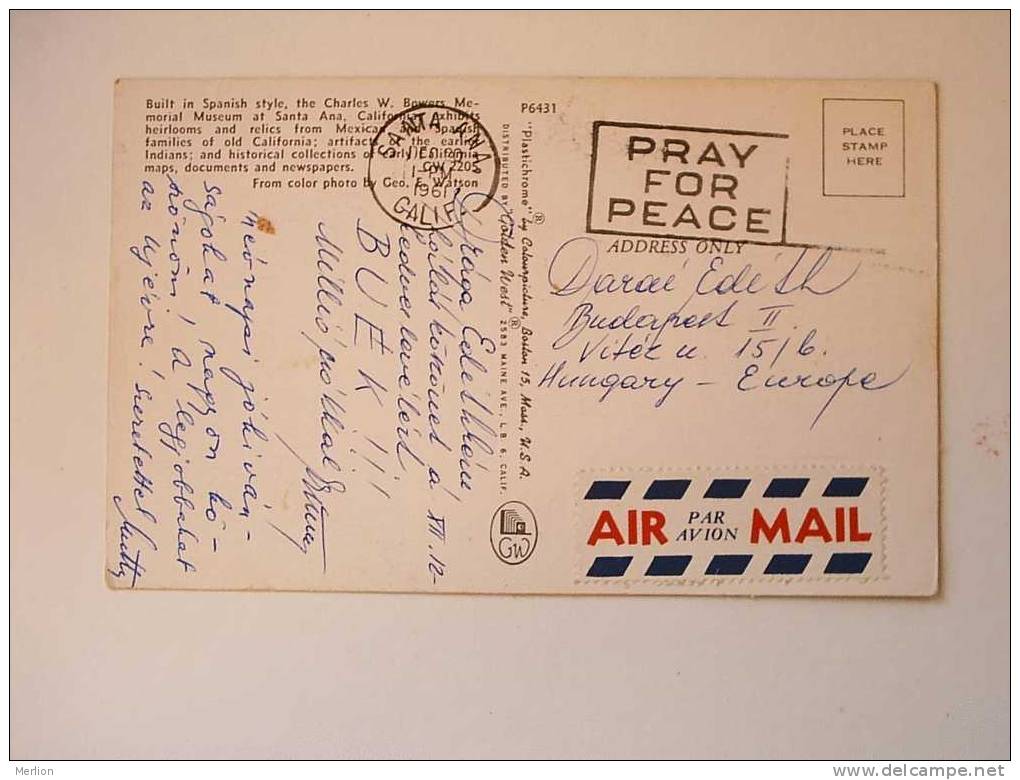 Built in Spanish style, the Charles W. Bowers Me-
morial Museum at Santa Ana, California, exhibits
heirlooms and relics from Mexican and Spanish
families of old California; artifacts of the earlier
Indians; and historical collections of early California
maps, documents and newspapers.
From color photo by Geo. E. Watson
P6431
SANTA ANA
1961
CALIF.
PRAY
FOR
PEACE
PLACE
STAMP
HERE
ADDRESS ONLY
"Plastichrome" ® by Colourpicture, Boston 15, Mass., U.S.A.
DISTRIBUTED BY "Golden West" ® 2583 MAINE AVE., L.B. 6, CALIF.
GW
Drága Edithkém
hálát kötönet a XII. 12-
kedves levélért
B U É K !!!
Millió csókkal
Névnapi jókíván-
ságokat nagyon kö-
szönöm! A legjobbakat
az Ujévre! Szeretettel
Edith
Budapest II.
Vitéz u. 15/b.
Hungary - Europe
AIR PAR AVION MAIL
Merlion
http://www.delcampe.net